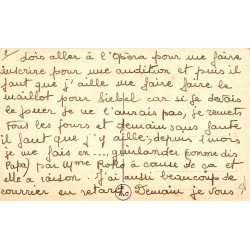 dois aller à l'Opéra pour me faire
inscrire pour une audition et puis il
faut que j'aille me faire faire le
maillot pour Siebel car si je devais
le jouer je ne l'aurais pas, je remets
tous les jours et demain sans faute
il faut que j'y aille; depuis 1 mois
je me fais en.... guirlander (comme dis
Papa) par Mme à cause de ça et
elle a raison. J'ai aussi beaucoup de
courrier en retard. Demain je vous